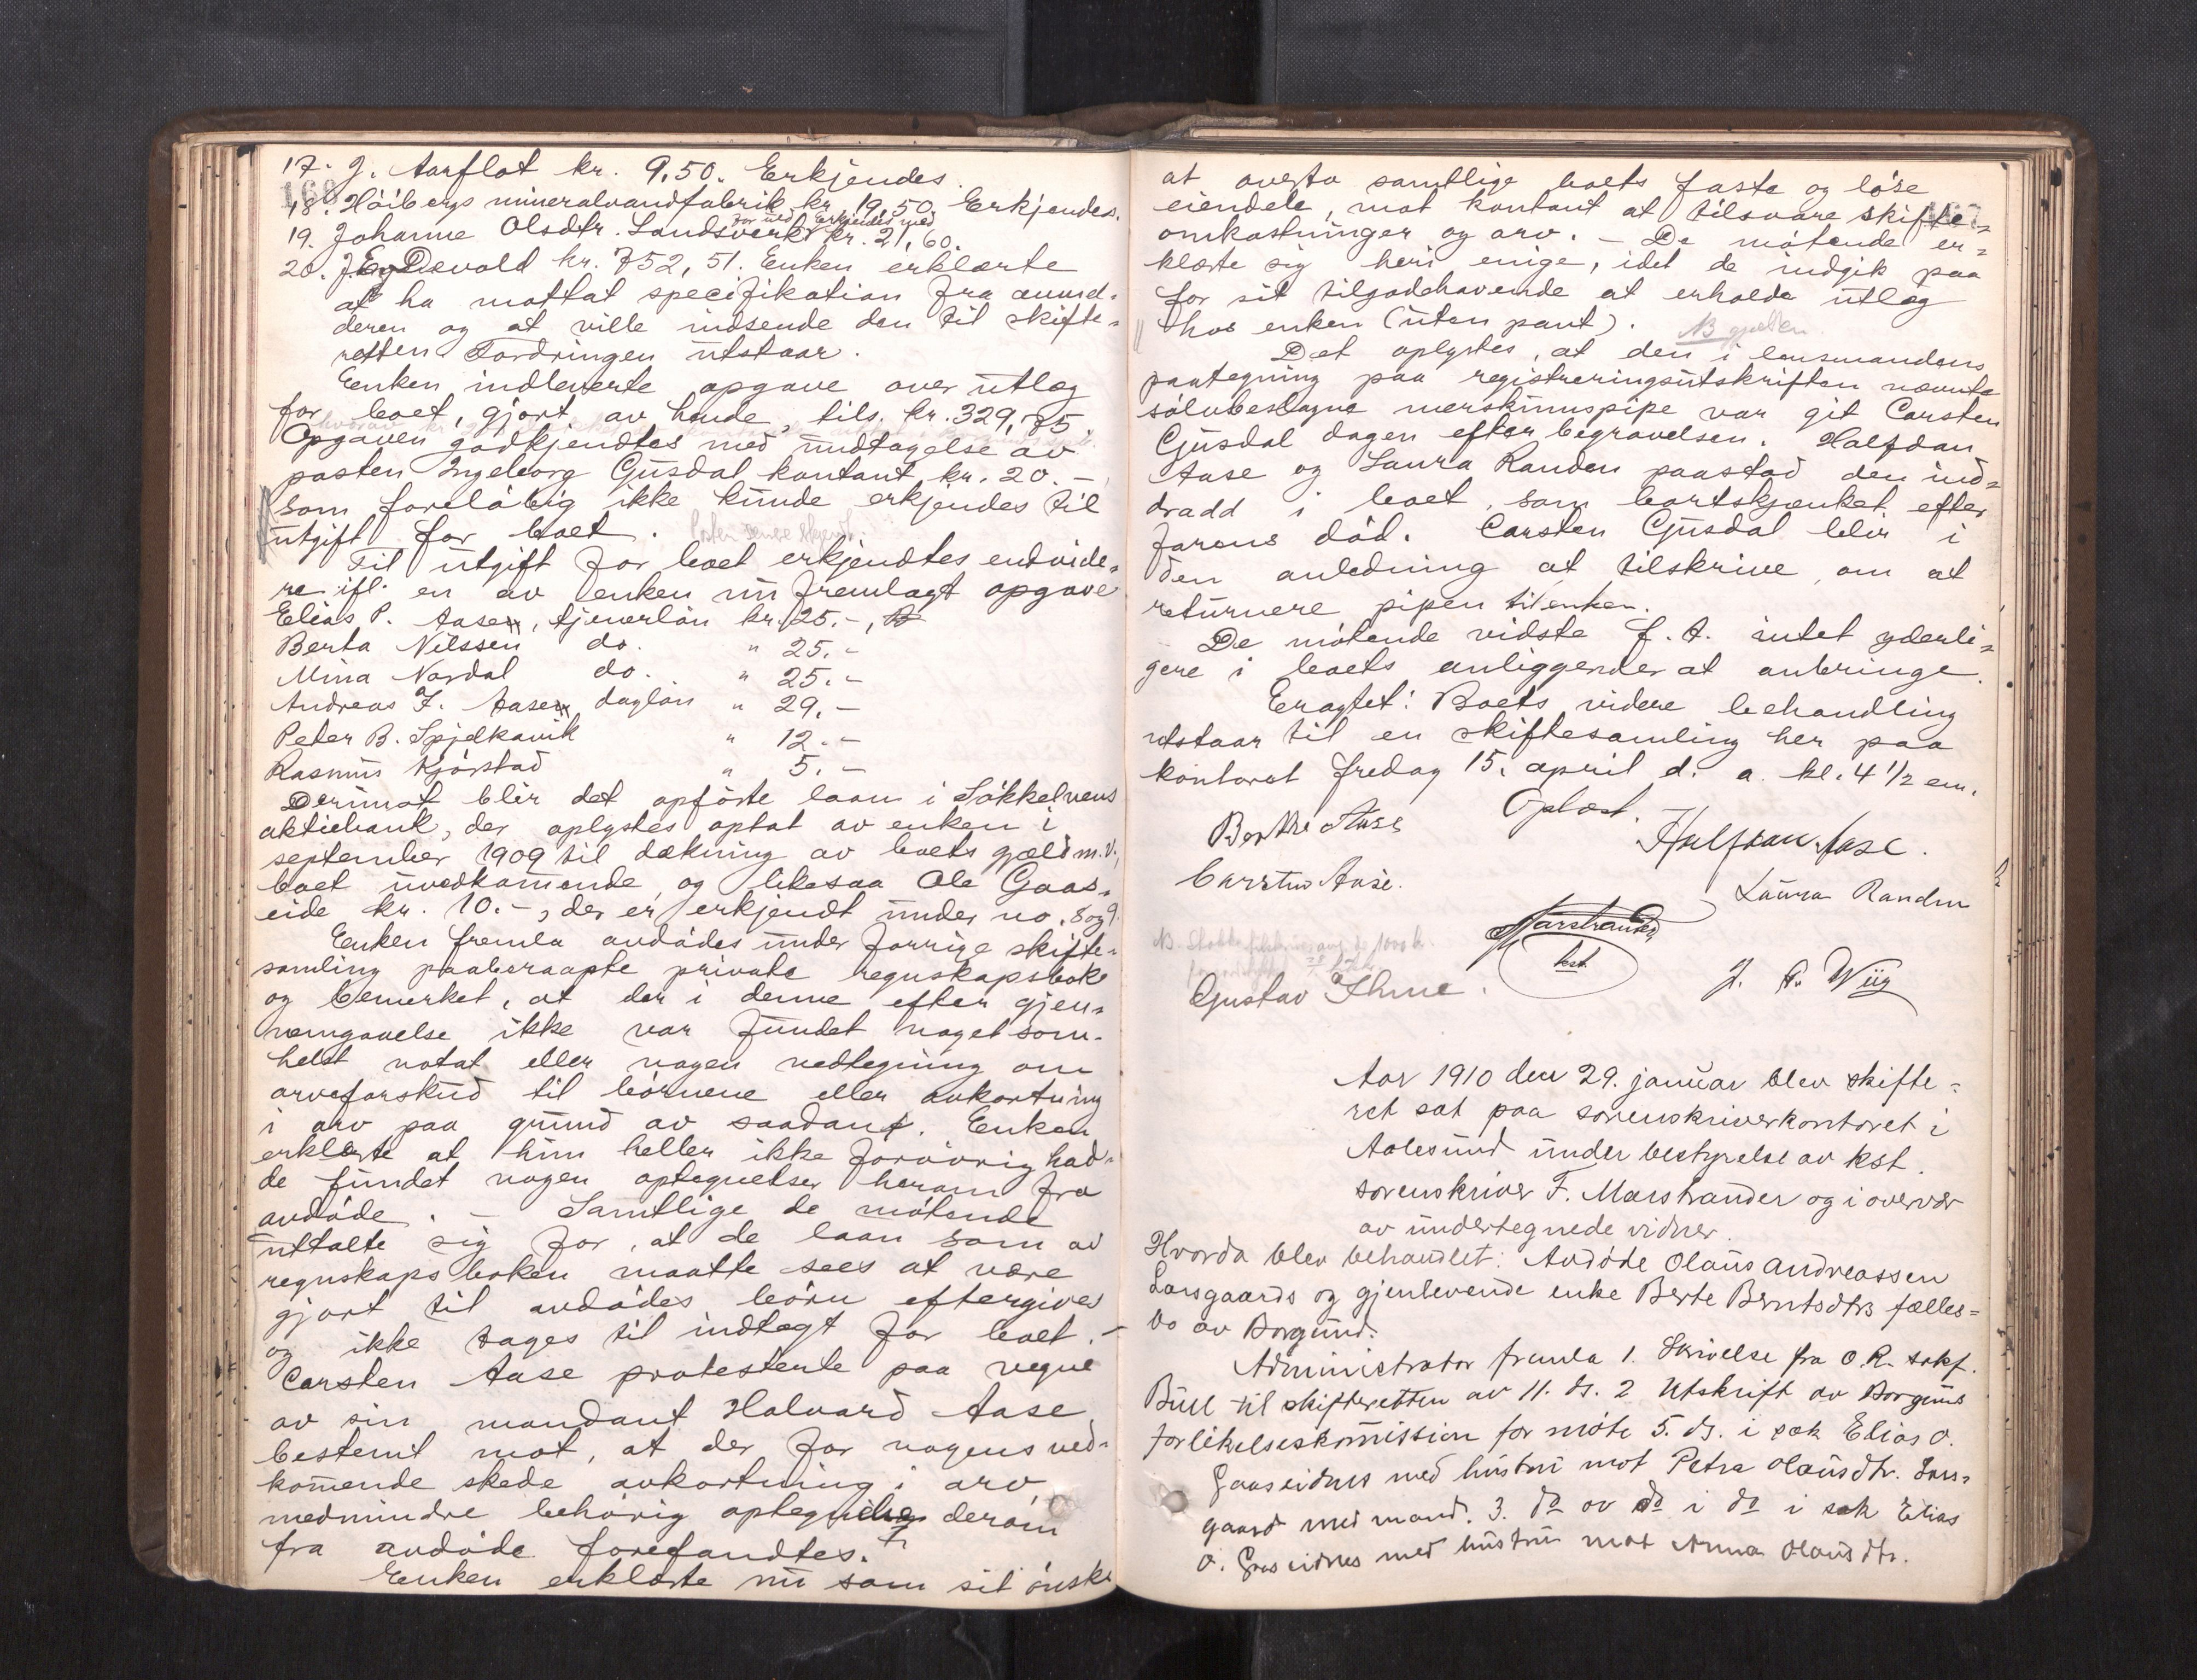 17. J. Aarflot kr. 9,50. Erkjendes.
166
18. Höibergs mineralvandfabrik kr. 19,50. Erkjendes.
Erkjendes med
19. Johanne Olsdtr. Landsverk kr. 21,60.
20. J. Eg. Devold kr. 752,51. Enken erklærte
at ha mottat specifikation fra anmel-
deren og at ville indsende den til skifte-
retten. Fordringen utstaar.
Enken indleverte opgave over utlæg
for boet, gjort av hende, tils. kr. 329,75.
Opgaven godkjendtes med undtagelse av
posten Ingeborg Gjusdal kontant kr. 20.-,
som foreløbig ikke kunde erkjendes til
utgift for boet.
Til utgift for boet erkjendtes endvide-
re ifl. en av enken nu fremlagt opgave
Elias P. Aase, tjenerløn kr. 25.-,
Berta Nilssen do. " 25.-
Mina Nordal do. " 25.-
Andreas J. Aase dagløn " 29.-
Peter B. Spjelkavik " 12.-
Rasmus Kjørstad " 5.-
Derimot blir det opførte laan i Søkkelvens
aktiebank, der oplystes optat av enken i
september 1909 til dækning av boets gjæld m.v.,
boet uvedkommende, og likesaa Ole Gaas-
eide kr. 10.-, der er erkjendt under no. 8 og 9.
Enken fremla avdødes under forrige skifte-
samling paaberaapte private regnskapsboke
og bemerket, at der i denne efter gjen-
nemgaaelse ikke var fundet noget som-
helst notat eller nogen nedtegning om
arveforskud til børnene eller avkortning
i arv paa grund av saadant. Enken
erklærte at hun heller ikke forøvrig had-
de fundet nogen optegnelser herom fra
avdøde. - Samtlige de møtende
uttalte sig for, at de laan som av
regnskapsboken maatte sees at være
gjort til avdødes børn eftergives
og ikke tages til indtægt for boet. -
Carsten Aase protesterte paa vegne
av sin mandant Halvard Aase
bestemt mot, at der for nogens ved-
kommende skede avkortning i arv,
medmindre behørig optegnelse derom
fra avdøde forefandtes.
Enken erklærte nu som sit ønske
at overta samtlige boets faste og løse
eiendele, mot kontant at tilsvare skifte-
omkostninger og arv. - De møtende er-
klærte sig heri enige, idet de indgik paa
for sit tilgodehavende at erholde utlæg
hos enken (uten pant). NB
Det oplystes, at den i lensmandens
paategning paa registreringsutskriften nævnte
sølvbeslagne merskumspipe var git Carsten
Gjusdal dagen efter begravelsen. Halfdan
Aase og Laura Randen paastod den ind-
dradd i boet, som bortskjænket efter
farens død. Carsten Gjusdal blir i
den anledning at tilskrive, om at
returnere pipen til enken.
De møtende vidste f. t. intet yderli-
gere i boets anliggender at anbringe.
Eragtet: Boets videre behandling
utstaar til en skiftesamling her paa
kontoret fredag 15. april d. a. kl. 4 1/2 em.
Oplæst.
Berthe Aase
Halfdan Aase.
Carsten Aase.
Laura Randen
Marstrander
kst.
Gustav Thue.
J. A. Wiig
Aar 1910 den 29. januar blev skifte-
ret sat paa sorenskriverkontoret i
Aalesund under bestyrelse av kst.
sorenskriver F. Marstrander og i overvær
av undertegnede vidner.
Hvorda blev behandlet: Avdøde Olaus Andreassen
Larsgaards og gjenlevende enke Berte Berntsdtrs fælles-
bo av Borgund.
Administrator fremla 1. Skrivelse fra O.R. sakf.
Bull til skifteretten av 11. ds. 2 Utskrift av Borgund
forlikelseskommission for møte 5. ds. i sak Elias O.
Gaaseidnes med hustru mot Petra Olausdtr. Lars-
gaard med mand. 3. do av do i do i sak Elias
O. Gaaseidnes med hustru mot Anna Olausdtr.